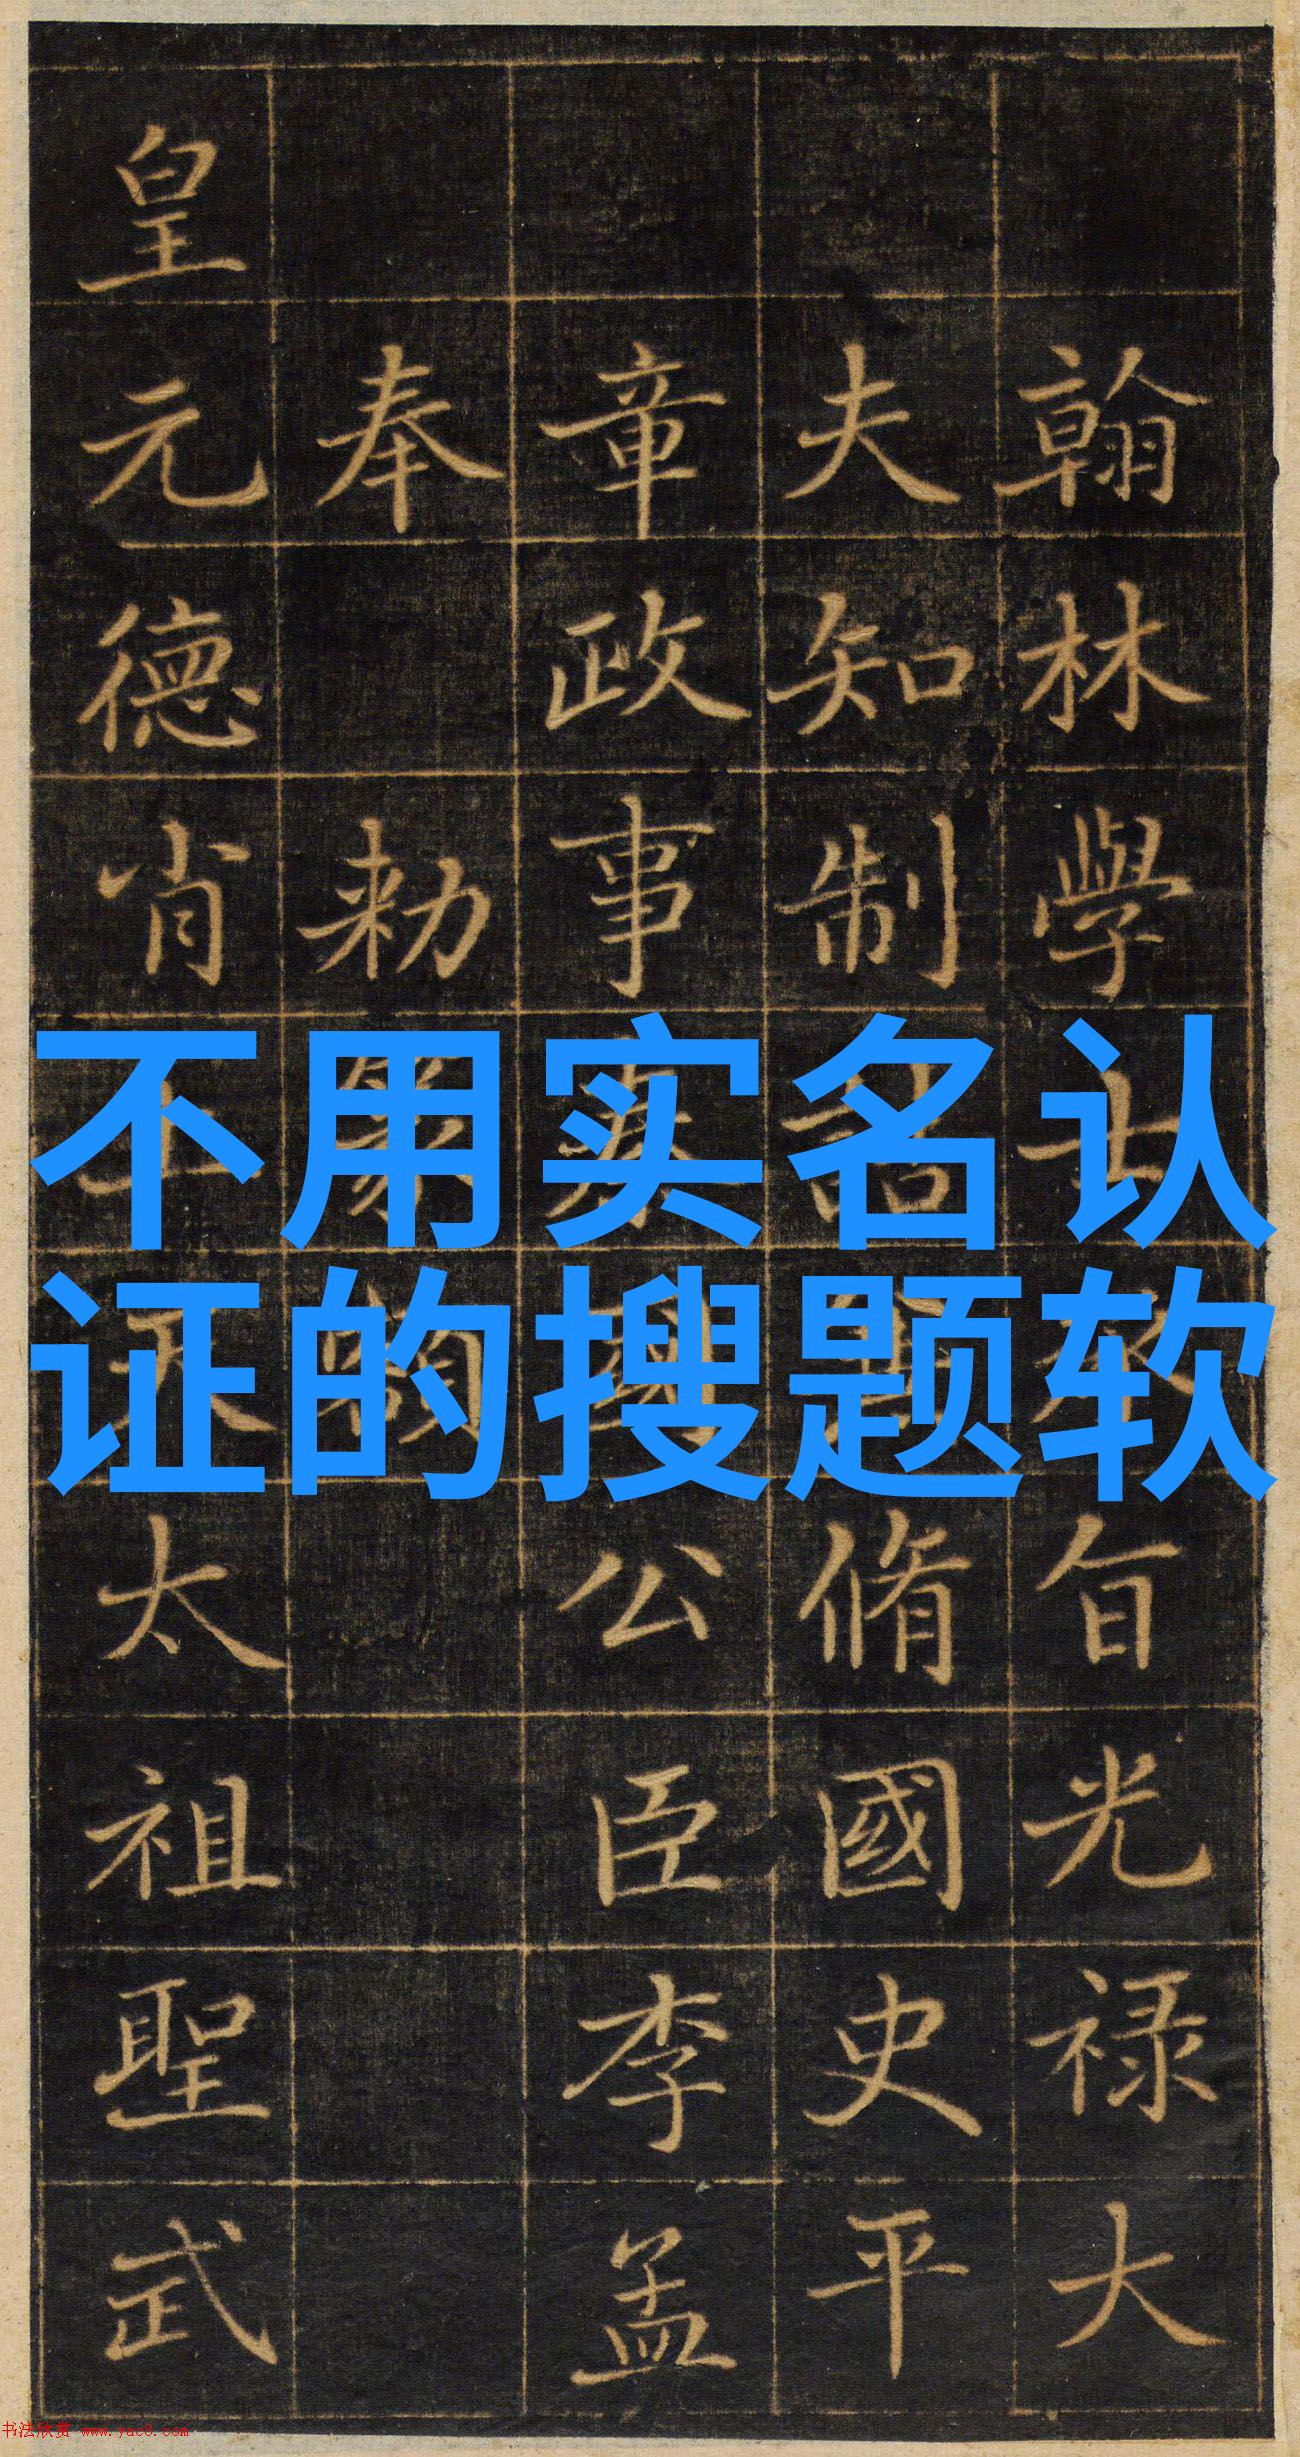 翰林學士旨光禄大
夫知制誥脩國史平
章政事秦國公臣李孟
奉勑篆額
皇元德肖上天太祖聖武
不用实名认
证的搜题软
书法欣赏 www.yac8.com